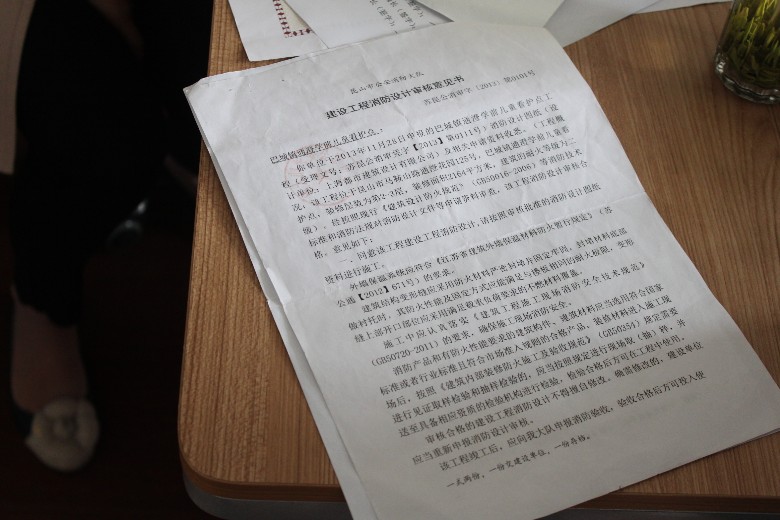 昆山市公安消防大队
建设工程消防设计审核意见书
苏昆公消审字〔2013〕第0101号
巴城镇逍遥学前儿童看护点:
你单位于2013年11月28日申报的巴城镇逍遥学前儿童看护点工
程(受理文号:苏昆公消审凭字【2013】第0111号)消防设计图纸(设
计单位:上海都市建筑设计有限公司)及相关申请资料收悉。(工程概
况:该工程位于昆山市马鞍山路逍遥花园125号,巴城镇逍遥学前儿童看
护点,装修层数为第2-3层,装修面积2164平方米,建筑的耐火等级为二
级)。经按照现行《建筑设计防火规范》(GB50016-2006)等消防技术
标准和消防法规对消防设计文件等申请资料审查,该工程消防设计审核合
格,意见如下:
一、同意该工程建设工程消防设计,请按照审核批准的消防设计图纸
资料进行施工。
外墙保温系统应符合《江苏省建筑外墙保温材料防火暂行规定》(苏
公通【2012】671号)的要求。
建筑结构变形缝应采用防火材料严密封堵并固定牢固,封堵材料底部
做衬托时,其防火性能及固定方式应能满足与楼板相同的耐火极限,变形
缝上部开口部位应采用满足载重负荷要求的不燃材料覆盖。
施工中应认真落实《建筑工程施工现场消防安全技术规范》
(GB50720-2011)的要求,确保施工现场消防安全。
消防产品和有防火性能要求的建筑构件、建筑材料应当选用符合国家
标准或者行业标准且符合市场准入规则的合格产品,装修材料进入施工现
场后,按照《建筑内部装修防火施工及验收规范》(GB50354)规定需要
进行见证取样检验和抽样检验的,应当按照规定进行现场取(抽)样,并
送至具备相应资质的检验机构进行检验,检验合格后方可在工程中使用。
审核合格的建设工程消防设计不得擅自修改。确需修改的,建设单位
应当重新申报消防设计审核。
该工程竣工后,应向我大队申报消防验收,验收合格后方可投入使
一式两份,一份交建设单位,一份存档。